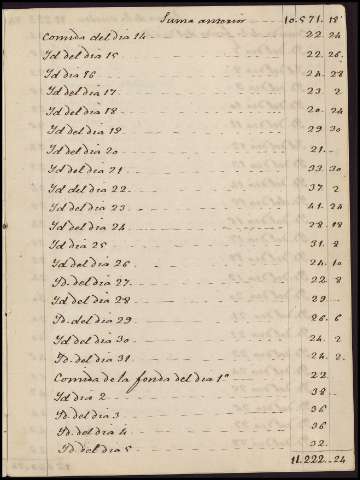 Suma anterior 10.571. 18
Comida del dia 14 22. 24
Id del dia 15 22. 26
Id dia 16 24. 28
Id. del dia 17 23. 2
Id. del dia 18 20. 24
Id del dia 19 29. 30
Id. del dia 20 21.
Id. del dia 21 33. 30
Id del dia 22. 37. 2
Id. del dia 23 41. 24
Id. del dia 24 28. 18
Id. dia 25 31. 8
Id. del dia 26 24. 10
Id. del dia 27. 22. 8
Id del dia 28 29
Id. del dia 29 26. 6
Id del dia 30 24. 2
Id. del dia 31 24. 2.
Comida de la fonda del dia 1º 22
Id dia 2 38
Id. del dia 3 36
Id. del dia 4 36
Id. del dia 5 32.
11.222. 24